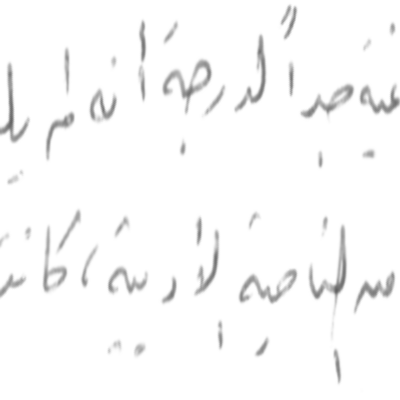 جداً لدرجة أنه لم
من الناحية الأدبية، كانت